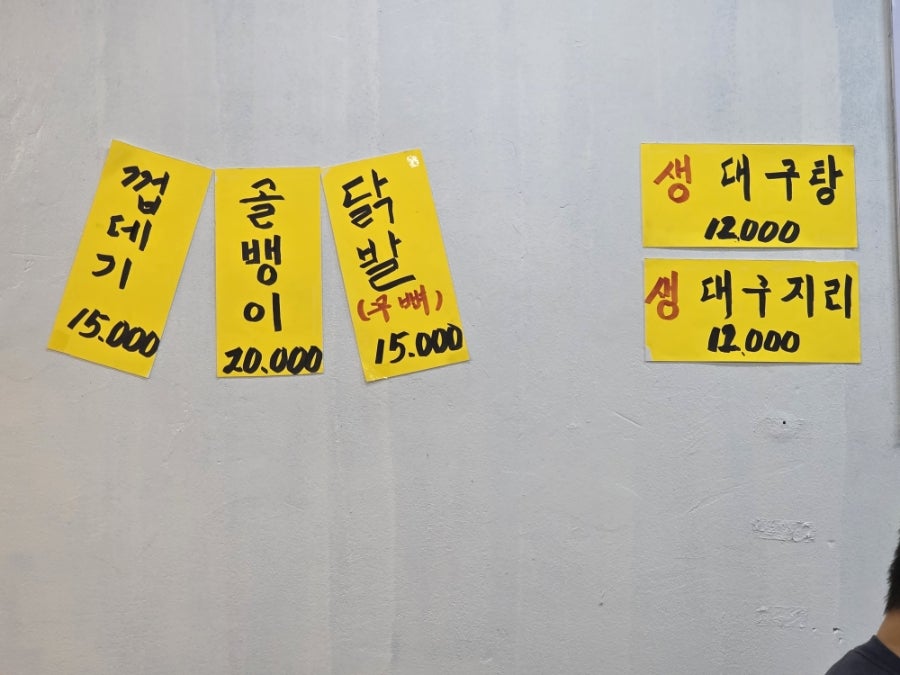 껍데기
15.000
골뱅이
20.000
닭발
(무뼈)
15.000
생 대구탕
12.000
생 대구지리
12.000